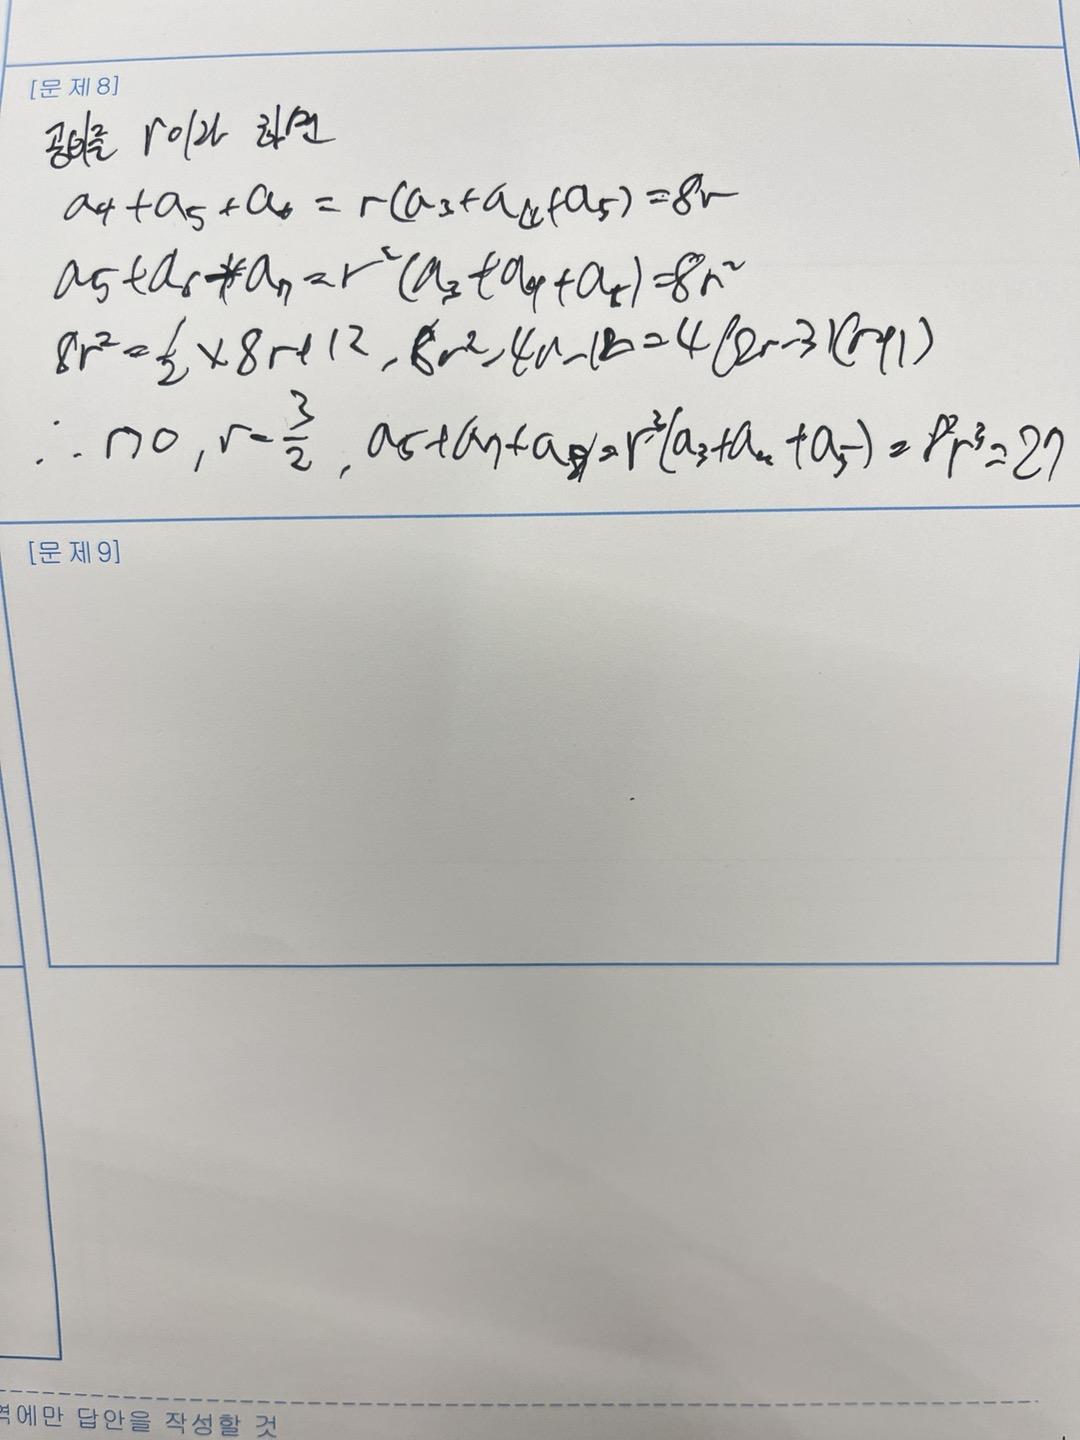 [문제8]
공비를 r이라 하면
a4+a5+a6 = r(a3+a4+a5)=8r
a5+a6+a7=r²(a3+a4+a5)=8r²
8r²=1/2×8r+12, 8r²-4r-12=4(2r-3)(r+1)
∴ r>0, r=3/2, a6+a7+a8=r³(a3+a4+a5)=8r³=27
[문제9]
역에만 답안을 작성할 것